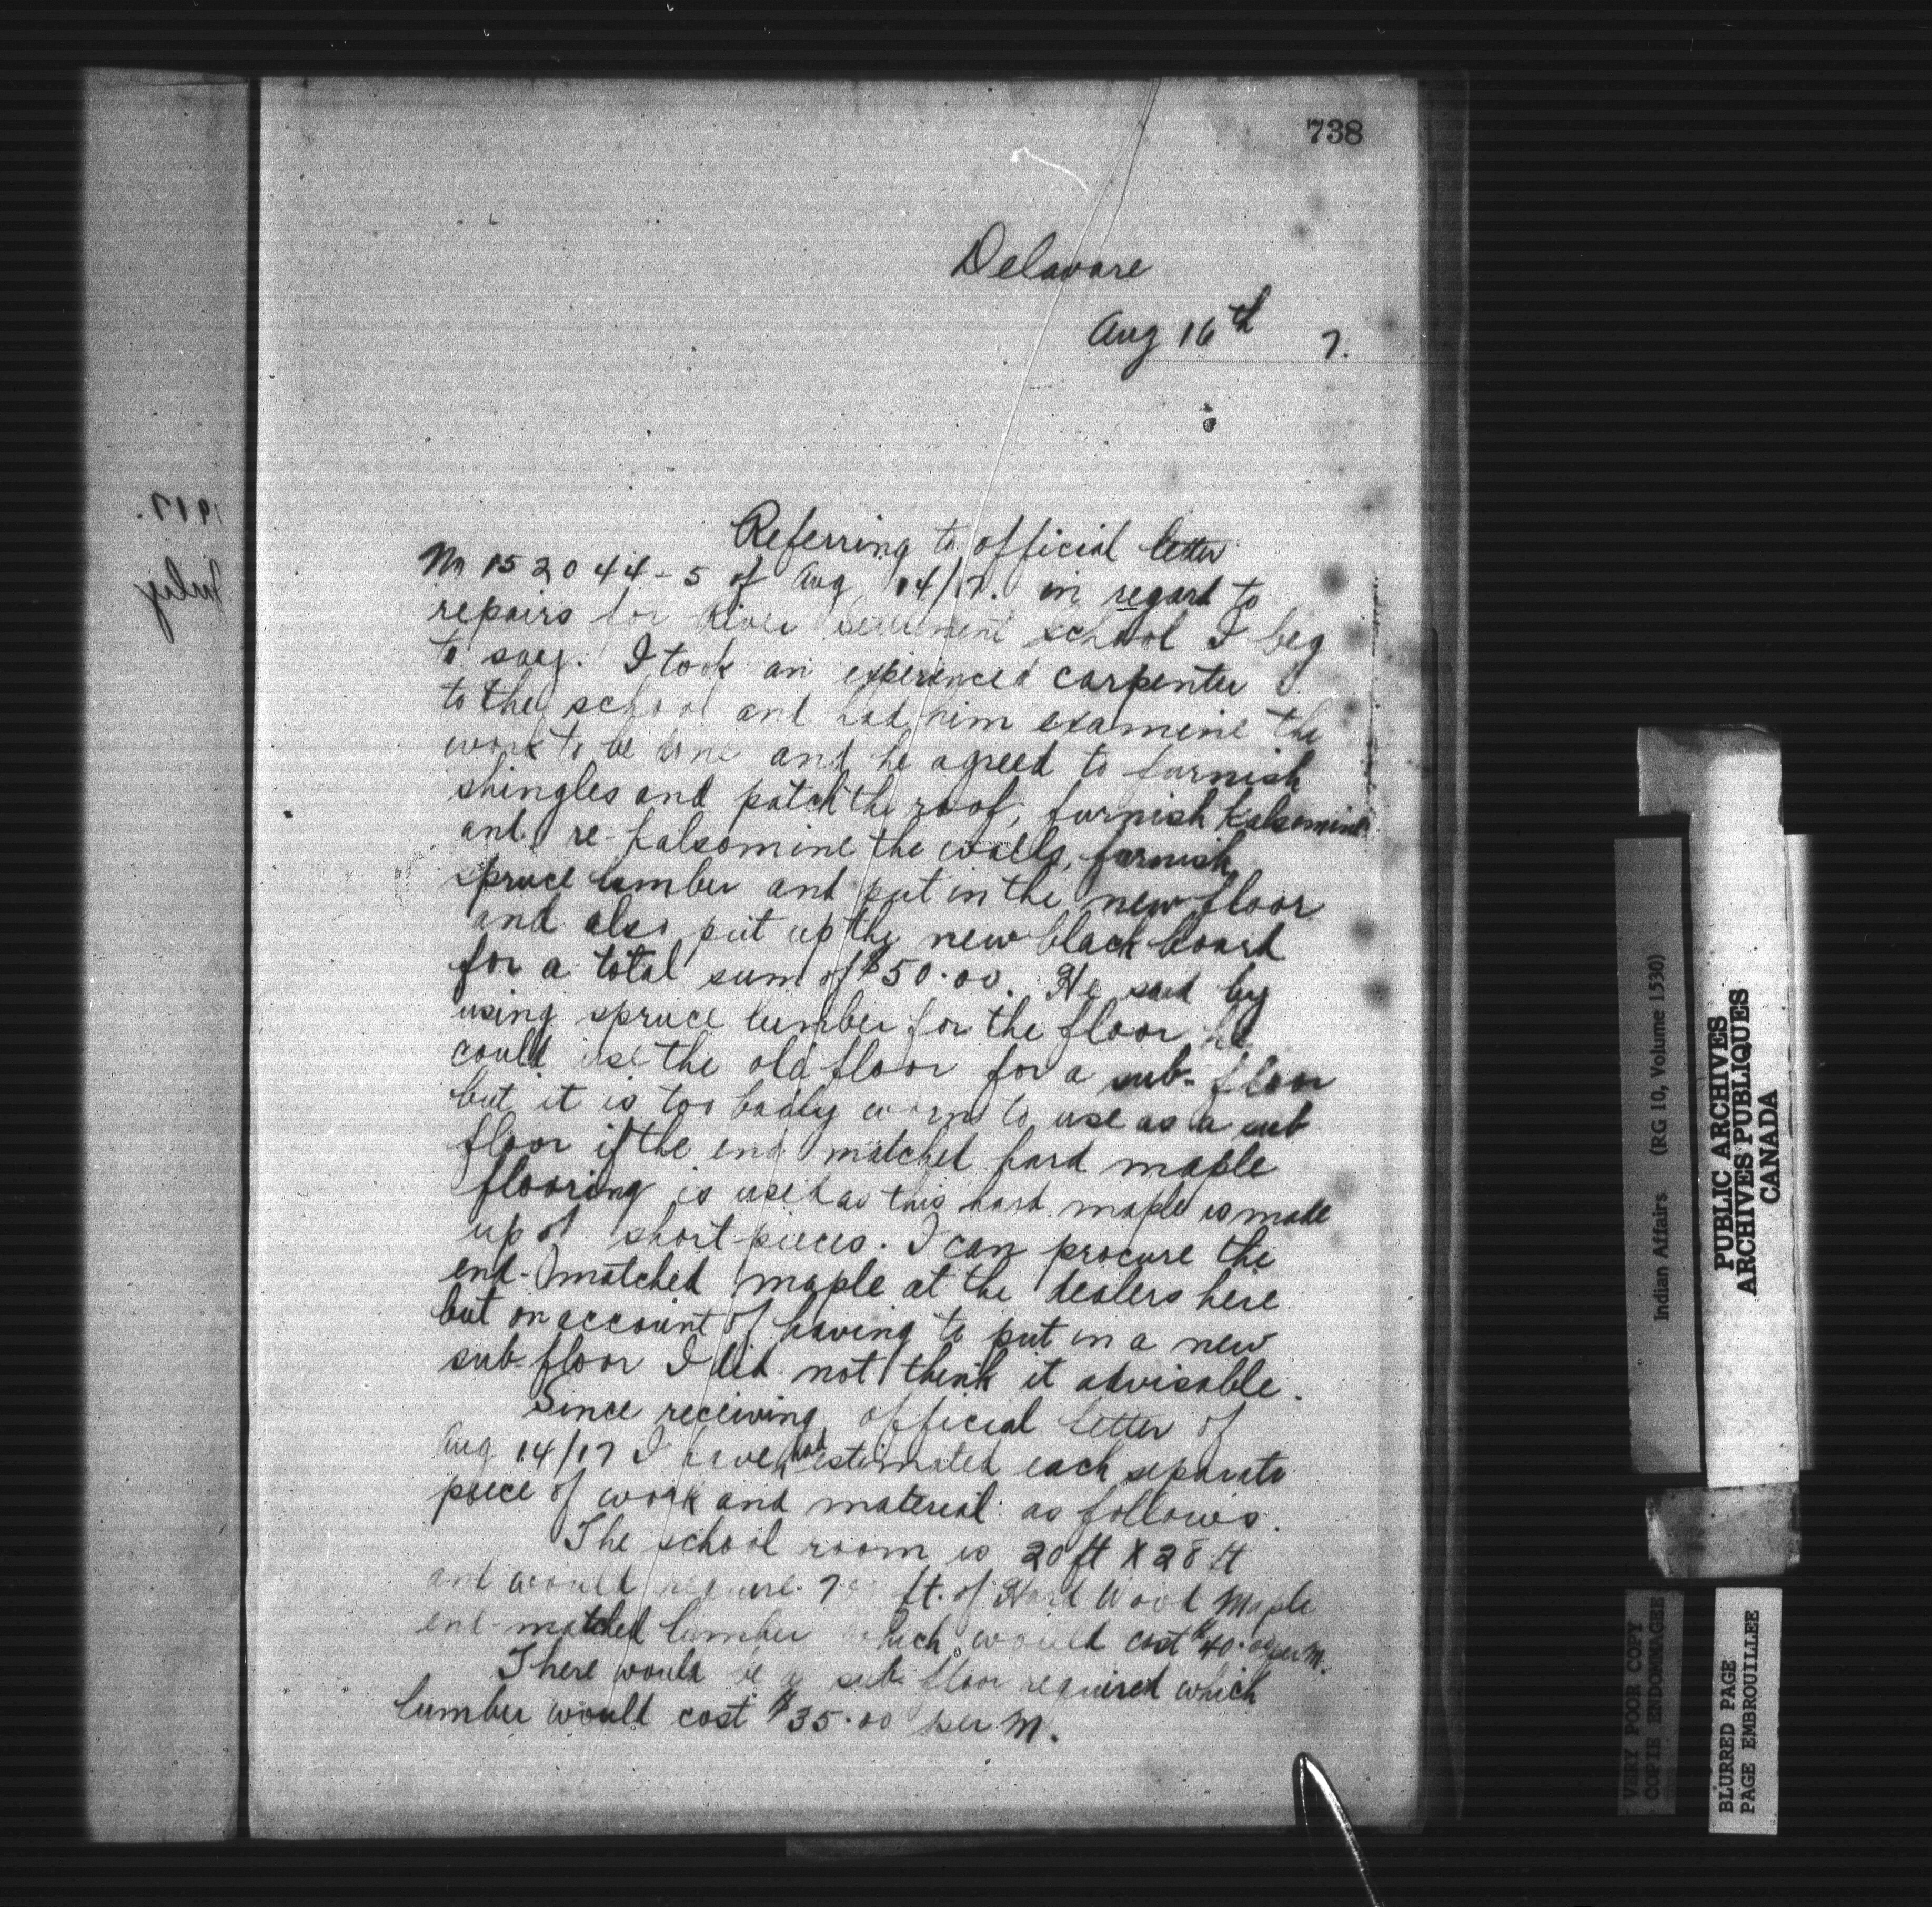 738
Delaware
Aug 16th 7.
Referring to official letter
No 152044-5 of Aug 14/17. in regard to
repairs for River Settlement school I beg
to say. I took an experienced carpenter
to the school and had him examine the
work to be done and he agreed to furnish
shingles and patch the roof, furnish Kalsomine
and re-kalsomine the walls, furnish
spruce lumber and put in the new floor
and also put up the new black board
for a total sum of $50.00. He said by
using spruce lumber for the floor he
could use the old floor for a sub-floor
but it is too badly worn to use as a sub
floor if the end matched hard maple
flooring is used as this hard maple is made
up of short pieces. I can procure the
end-matched maple at the dealers here
but on account of having to put in a new
sub-floor I did not think it advisable.
Since receiving official letter of
Aug 14/17 I have had estimated each separate
piece of work and material as follows.
The school room is 20 ft X 28 ft
and would require ft. of Hard Wood Maple
end-matched lumber which would cost $40.00 per M.
There would be a sub-floor required which
lumber would cost $35.00 per M.
1917.
July
Indian Affairs (RG 10, Volume 1530)
PUBLIC ARCHIVES
ARCHIVES PUBLIQUES
CANADA
VERY POOR COPY
COPIE ENDOMMAGEE
BLURRED PAGE
PAGE EMBROUILLEE